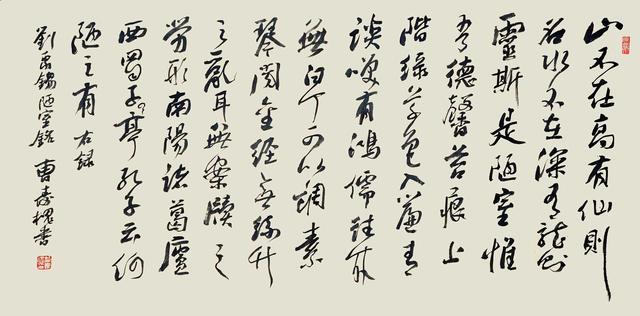 山不在高有仙則
名水不在深有龍則
靈斯是陋室惟
吾德馨苔痕上
階綠草色入簾青
談笑有鴻儒往來
無白丁可以調素
琴閱金經無絲竹
之亂耳無案牘之
勞形南陽諸葛廬
西蜀子云亭孔子云何
陋之有 右錄
劉禹錫陋室銘 曹壽槐書